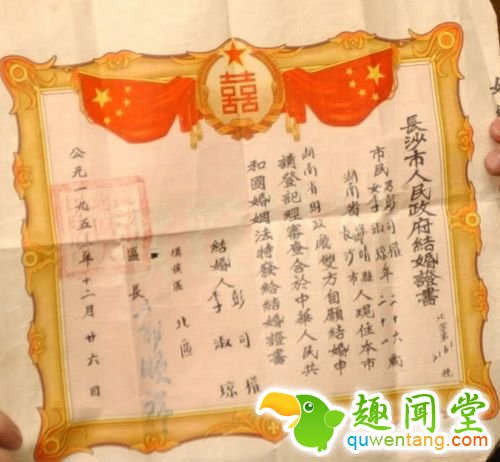 囍
長沙市人民政府結婚證書
北字第2161號
市民男彭司 年二十六歲
女李淑琼 二十一
湖南省 縣人現住本市
長沙市
湖南省財政廳雙方自願結婚申
請登記經審查合於中華人民共
和國婚姻法特發給結婚證書
結婚人彭司
李淑琼
填發區 北區
區長
公元一九五 年十二月廿六日
趣闻堂
quwentang.com